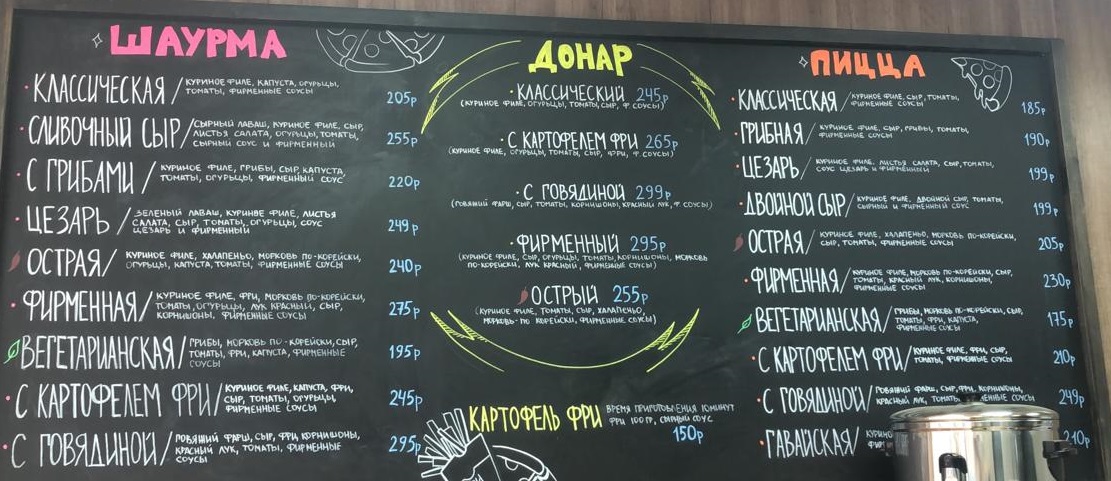 ШАУРМА
КЛАССИЧЕСКАЯ / КУРИНОЕ ФИЛЕ, КАПУСТА, ОГУРЬЦЫ,
ТОМАТЫ, ФИРМЕННЫЕ СОУСЫ
205р
СЛИВОЧНЫЙ СЫР / СЫРНЫЙ ЛАВАШ, КУРИНОЕ ФИЛЕ, СЫР,
ЛИСТЬЯ САЛАТА, ОГУРЬЦЫ, ТОМАТЫ,
СЫРНЫЙ СОУС И ФИРМЕННЫЙ
255р
С ГРИБАМИ / КУРИНОЕ ФИЛЕ, ГРИБЫ, СЫР, КАПУСТА,
ТОМАТЫ, ОГУРЬЦЫ, ФИРМЕННЫЙ СОУС
220р
ЦЕЗАРЬ / ЗЕЛЕНЫЙ ЛАВАШ, КУРИНОЕ ФИЛЕ, ЛИСТЬЯ
САЛАТА, СЫР, ТОМАТЫ, ОГУРЬЦЫ, СОУС
ЦЕЗАРЬ И ФИРМЕННЫЙ
249р
ОСТРАЯ / КУРИНОЕ ФИЛЕ, ХАЛАПЕНЬО, МОРКОВЬ ПО-КОРЕЙСКИ,
ОГУРЬЦЫ, КАПУСТА, ТОМАТЫ, ФИРМЕННЫЕ СОУСЫ
240р
ФИРМЕННАЯ / КУРИНОЕ ФИЛЕ, ФРИ, МОРКОВЬ ПО-КОРЕЙСКИ,
ТОМАТЫ, ОГУРЬЦЫ, ЛУК КРАСНЫЙ, СЫР,
КОРНИШОНЫ, ФИРМЕННЫЕ СОУСЫ
275р
ВЕГЕТАРИАНСКАЯ / ГРИБЫ, МОРКОВЬ ПО-КОРЕЙСКИ, СЫР,
ТОМАТЫ, ФРИ, КАПУСТА, ФИРМЕННЫЕ
СОУСЫ
195р
С КАРТОФЕЛЕМ ФРИ / КУРИНОЕ ФИЛЕ, КАПУСТА, ФРИ,
СЫР, ТОМАТЫ, ОГУРЬЦЫ,
ФИРМЕННЫЕ СОУСЫ
245р
С ГОВЯДИНОЙ / ГОВЯЖИЙ ФАРШ, СЫР, ФРИ, КОРНИШОНЫ,
КРАСНЫЙ ЛУК, ТОМАТЫ, ФИРМЕННЫЕ
СОУСЫ
295р
ДОНАР
КЛАССИЧЕСКИЙ 245р
(КУРИНОЕ ФИЛЕ, ОГУРЬЦЫ, ТОМАТЫ, СЫР, Ф. СОУСЫ)
С КАРТОФЕЛЕМ ФРИ 265р
(КУРИНОЕ ФИЛЕ, ОГУРЬЦЫ, ТОМАТЫ, СЫР, ФРИ, Ф. СОУСЫ)
С ГОВЯДИНОЙ 299р
(ГОВЯЖИЙ ФАРШ, СЫР, ТОМАТЫ, КОРНИШОНЫ, КРАСНЫЙ ЛУК, Ф. СОУСЫ)
ФИРМЕННЫЙ 295р
(КУРИНОЕ ФИЛЕ, СЫР, ОГУРЬЦЫ, ТОМАТЫ, КОРНИШОНЫ, МОРКОВЬ
ПО-КОРЕЙСКИ, ЛУК КРАСНЫЙ, ФИРМЕННЫЕ СОУСЫ)
ОСТРЫЙ 255р
(КУРИНОЕ ФИЛЕ, ТОМАТЫ, СЫР, ХАЛАПЕНЬО,
МОРКОВЬ-ПО КОРЕЙСКИ, ФИРМЕННЫЕ СОУСЫ)
КАРТОФЕЛЬ ФРИ ВРЕМЯ ПРИГОТОВЛЕНИЯ 10МИНУТ
ФРИ 100 ГР, СЫРНЫЙ СОУС
150р
ПИЦЦА
КЛАССИЧЕСКАЯ / КУРИНОЕ ФИЛЕ, СЫР, ТОМАТЫ,
ФИРМЕННЫЕ СОУСЫ
185р
ГРИБНАЯ / КУРИНОЕ ФИЛЕ, СЫР, ГРИБЫ, ТОМАТЫ,
ФИРМЕННЫЕ СОУСЫ
190р
ЦЕЗАРЬ / КУРИНОЕ ФИЛЕ, ЛИСТЬЯ САЛАТА, СЫР, ТОМАТЫ,
СОУС ЦЕЗАРЬ И ФИРМЕННЫЙ
199р
ДВОЙНОЙ СЫР / КУРИНОЕ ФИЛЕ, ДВОЙНОЙ СЫР, ТОМАТЫ,
СЫРНЫЙ И ФИРМЕННЫЙ СОУС
199р
ОСТРАЯ / КУРИНОЕ ФИЛЕ, ХАЛАПЕНЬО, МОРКОВЬ ПО-КОРЕЙСКИ,
СЫР, ТОМАТЫ, ФИРМЕННЫЕ СОУСЫ
205р
ФИРМЕННАЯ / КУРИНОЕ ФИЛЕ, МОРКОВЬ ПО-КОРЕЙСКИ, СЫР,
ТОМАТЫ, КРАСНЫЙ ЛУК, КОРНИШОНЫ,
ФИРМЕННЫЕ СОУСЫ
230р
ВЕГЕТАРИАНСКАЯ / ГРИБЫ, МОРКОВЬ ПО-КОРЕЙСКИ, СЫР,
ТОМАТЫ, ФРИ, КАПУСТА,
ФИРМЕННЫЕ СОУСЫ
175р
С КАРТОФЕЛЕМ ФРИ / КУРИНОЕ ФИЛЕ, ФРИ, СЫР,
ТОМАТЫ, ФИРМЕННЫЕ СОУСЫ
210р
С ГОВЯДИНОЙ / ГОВЯЖИЙ ФАРШ, СЫР, ФРИ, КОРНИШОНЫ,
КРАСНЫЙ ЛУК, СОУСЫ
249р
ГАВАЙСКАЯ /
210р